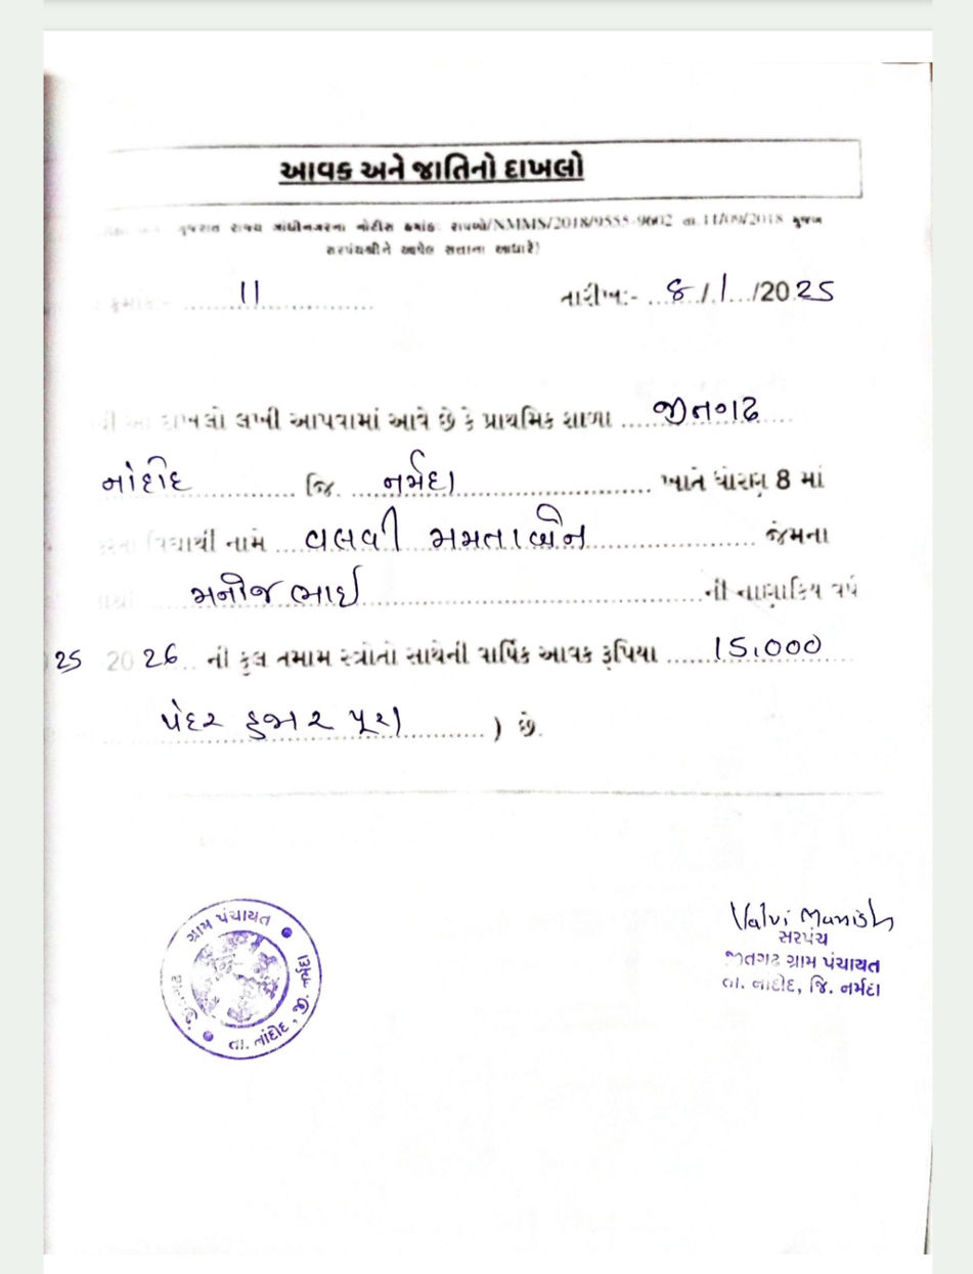 આવક અને જાતિનો દાખલો
ગુજરાત રાજ્ય ગાંધીનગરના નોટીસ ક્રમાંક: રાપબો/NMMS/2018/9555-9602 તા.11/09/2018 મુજબ
સરપંચશ્રીને આપેલ સત્તાના આધારે)
ક્રમાંક - ........11..................
તારીખ:- ...8../.1.../2025
દાખલો લખી આપવામાં આવે છે કે પ્રાથમિક શાળા ....જીતગઢ....
નાંદોદ............. જિ. ...નર્મદા........................ ખાતે ધોરણ 8 માં
વિદ્યાર્થી નામ ....વલવી મમતાબેન.................. જેમના
મનોજભાઈ.................................ની નાણાકિય વર્ષ
25 2026.. ની કુલ તમામ સ્ત્રોતો સાથેની વાર્ષિક આવક રૂપિયા ......15,000....
પંદર હજાર પુરા............) છે.
ગ્રામ પંચાયત
તા. નાંદોદ, જી. નર્મદા
Valvi Manish
સરપંચ
જીતગઢ ગ્રામ પંચાયત
તા. નાંદોદ, જિ. નર્મદા